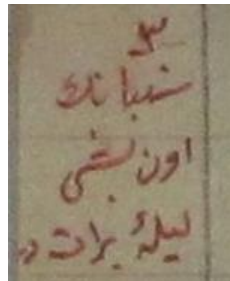 ٣
شعبانك
اون بشى
ليلۀ براتدر